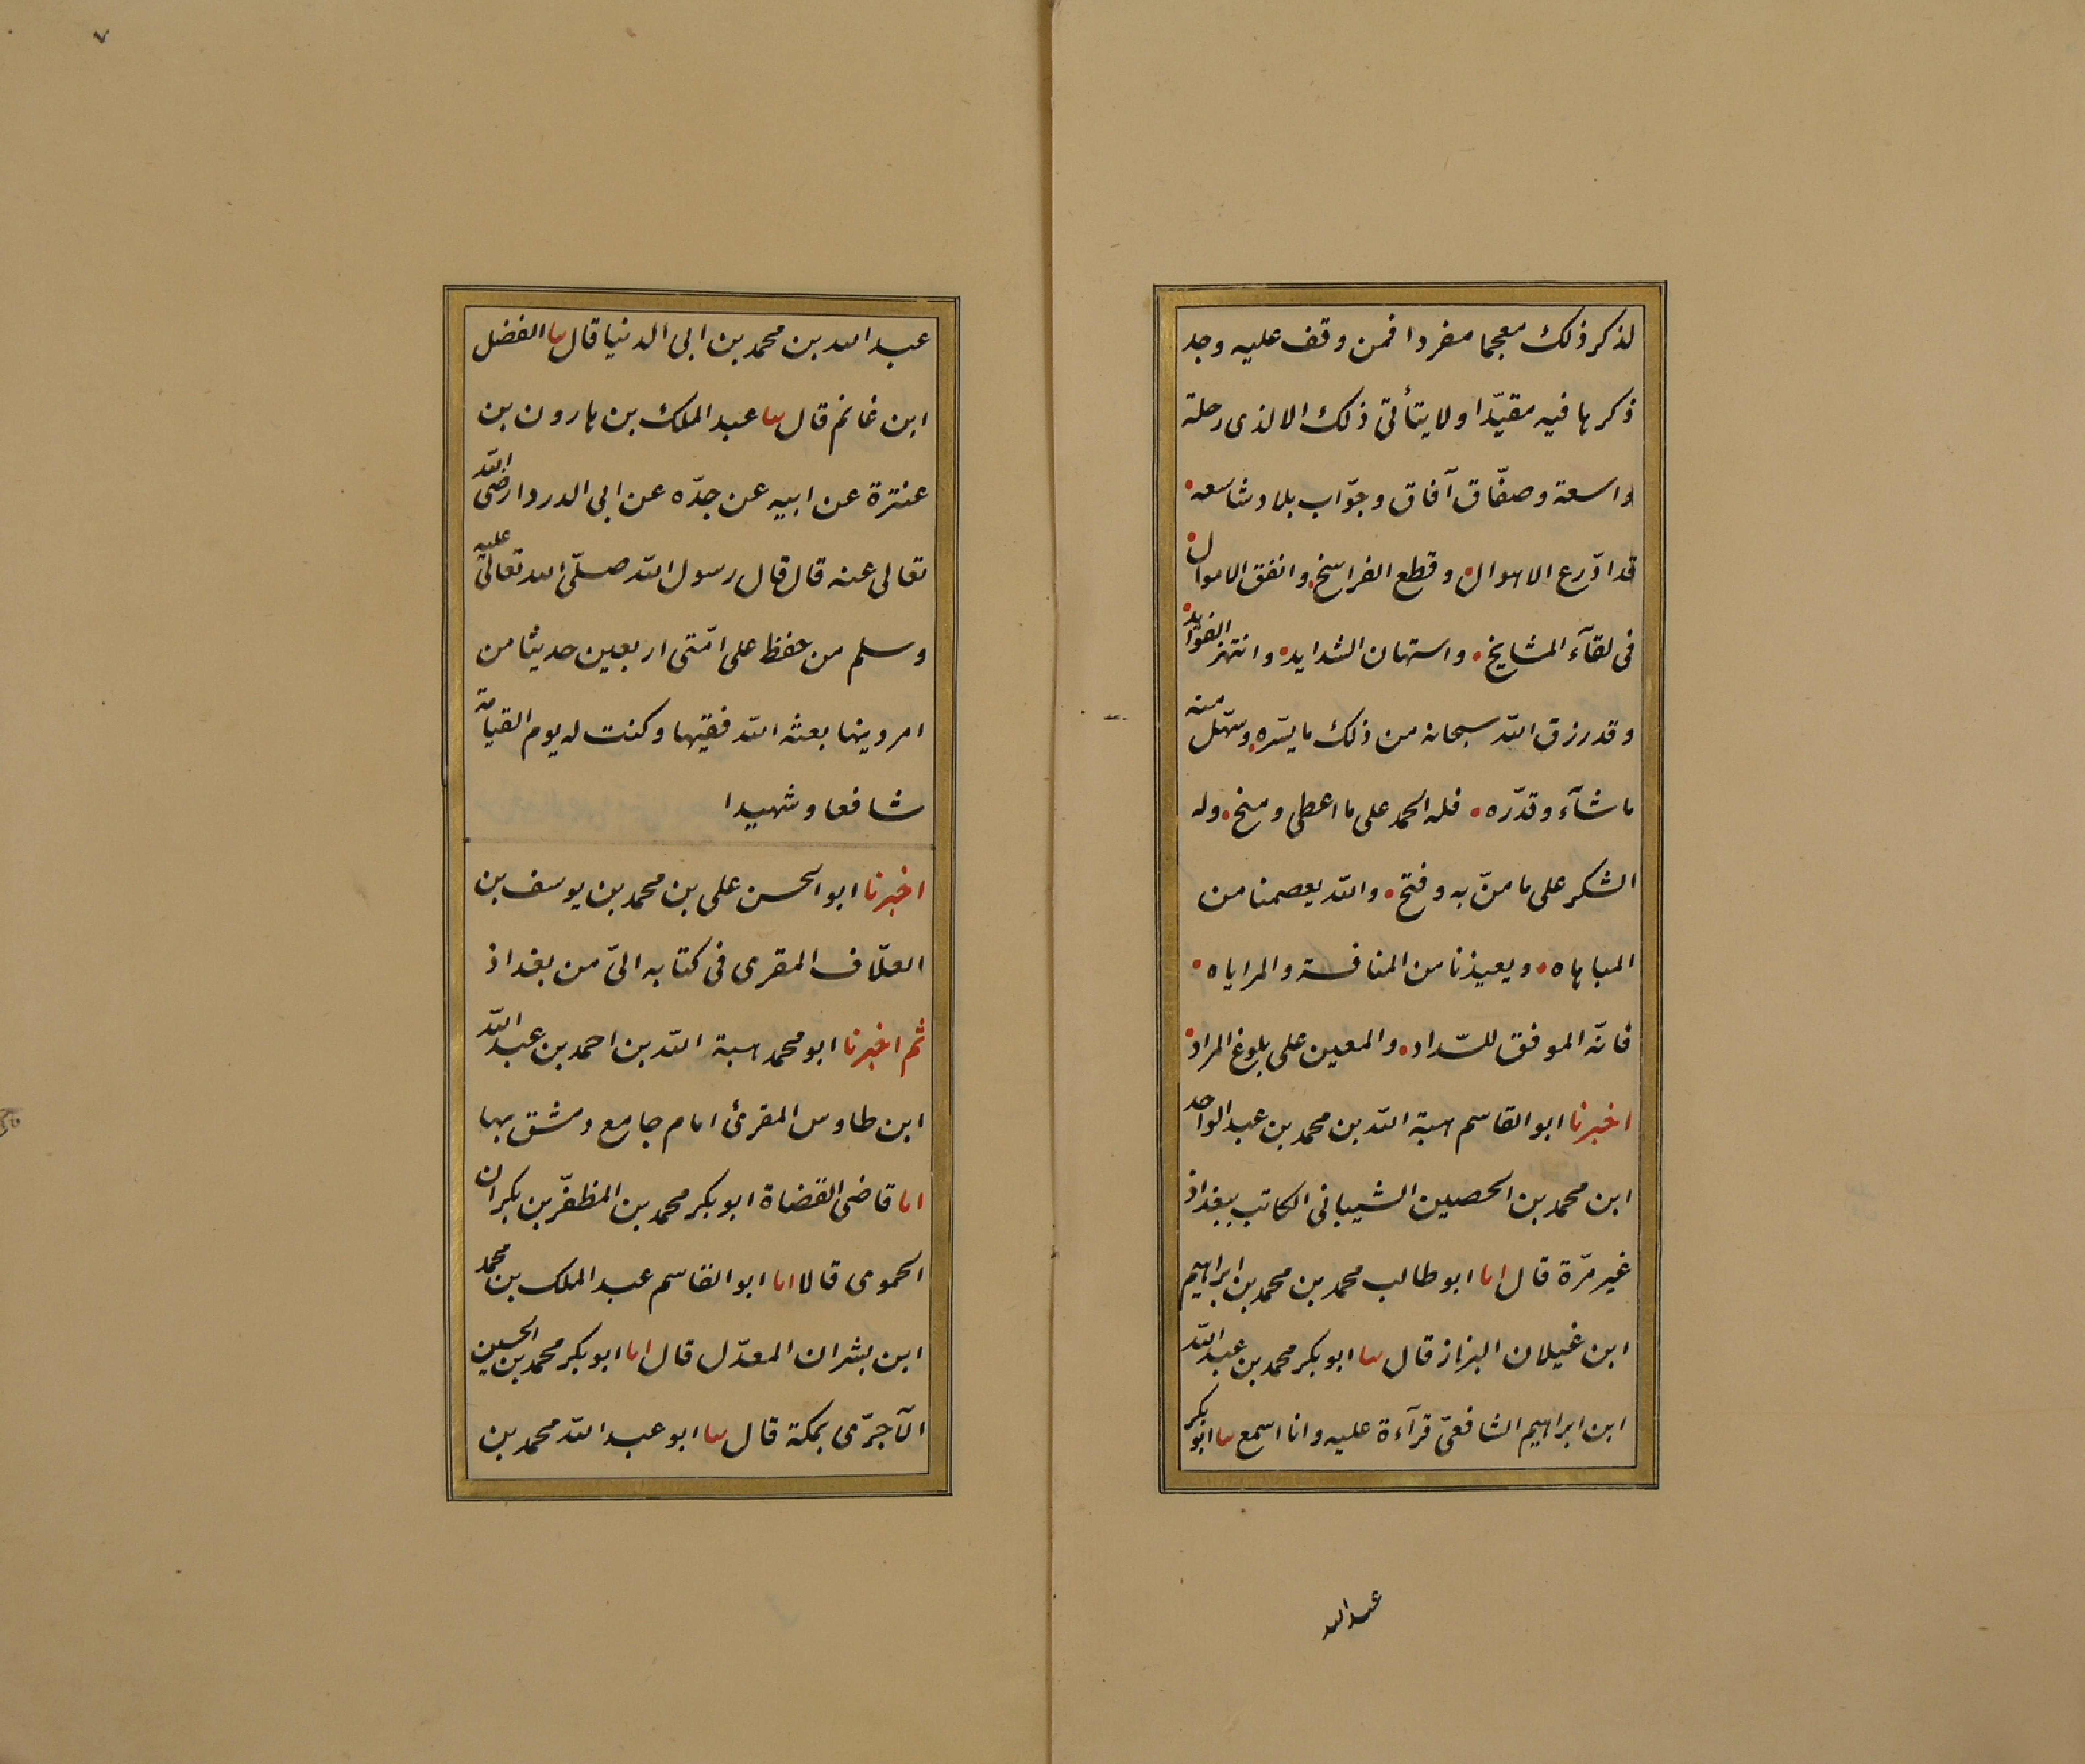 لذكر ذلك معجما مفردا فمن وقف عليه وجد
ذكرها فيه مقيّدا ولا يتأتى ذلك الا لذى رحلة
واسعة وصفّاق آفاق وجوّاب بلاد شاسعه
قد ادّرع الاهوال وقطع الفراسخ وانفق الاموال
فى لقآء المشايخ واستهان الشدايد وانتهز الفوايد
وقد رزق الله سبحانه من ذلك ما يسّره وسهّل منه
ما شآء وقدّره فله الحمد على ما اعطى ومنح وله
الشكر على ما منّ به وفتح والله يعصمنا من
المباهاه ويعيذنا من المنافسة والمراياه
فانّه الموفق للسّداد والمعين على بلوغ المراد
اخبرنا ابو القاسم هبة الله بن محمد بن عبد الواحد
ابن محمد بن الحصين الشيبانى الكاتب ببغداذ
غير مرّة قال انا ابو طالب محمد بن محمد بن ابراهيم
ابن غيلان البزاز قال ثنا ابو بكر محمد بن عبد الله
ابن ابراهيم الشافعىّ قرآءة عليه وانا اسمع ثنا ابو بكر
عبد الله
٧
عبد الله بن محمد بن ابى الدنيا قال ثنا الفضل
ابن غانم قال ثنا عبد الملك بن هارون بن
عنترة عن ابيه عن جدّه عن ابى الدردا رضى الله
تعالى عنه قال قال رسول الله صلّى الله تعالى عليه
وسلم من حفظ على امّتى اربعين حديثا من
امر دينها بعثه الله فقيها وكنت له يوم القيامة
شافعا وشهيدا
اخبرنا ابو الحسن على بن محمد بن يوسف بن
العلّاف المقرى فى كتابه الىّ من بغداذ
ثم اخبرنا ابو محمد هبة الله بن احمد بن عبد الله
ابن طاوس المقرئ امام جامع دمشق بها
انا قاضى القضاة ابو بكر محمد بن المظفّر بن بكران
الحموى قالا انا ابو القاسم عبد الملك بن محمد
ابن بشران المعدّل قال انا ابو بكر محمد بن الحسين
الآجرّى بمكة قال ثنا ابو عبد الله محمد بن